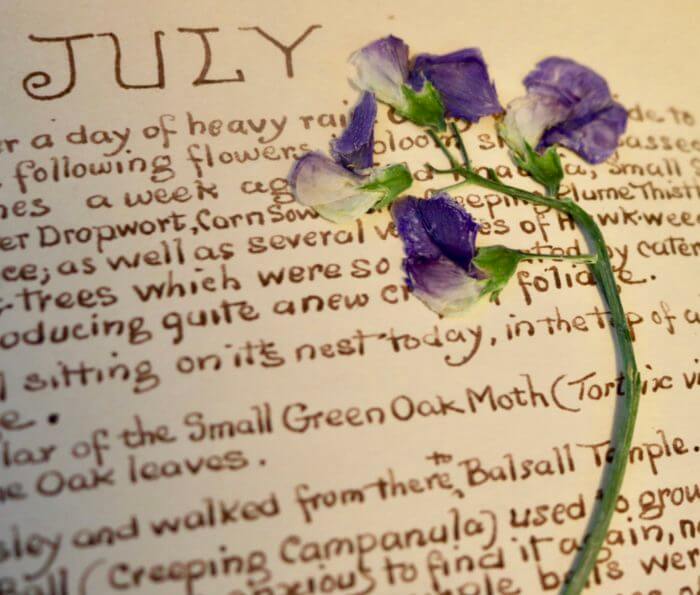 JULY
r a day of heavy rai de to
following flowers bloom passed
nes a week ag Small S
er Dropwort, Corn Sow eeping Plume Thist
ee; as well as several of wk-wee
-trees which were so by cater
oducing quite a new foliage.
sitting on it's nest to-day, in the top of a
e.
lar of the Small Green Oak Moth (Tortrix vi
e Oak leaves.
sley and walked from there, to Balsall Temple.
ell (Creeping Campanula) used to grow
anxious to find it again,
ple bells wer